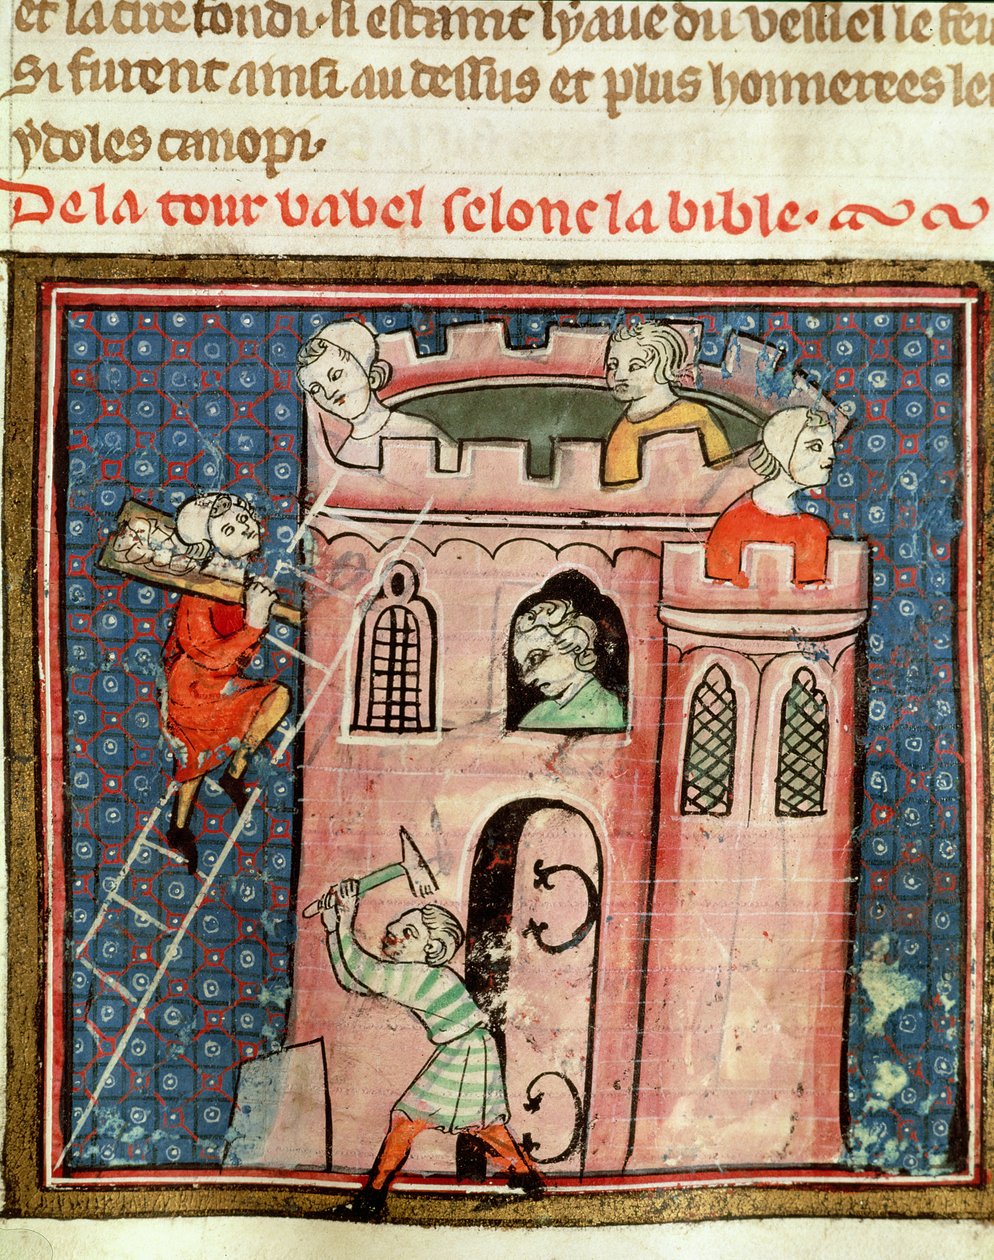 et la cire fondi. si estaint lyaue du vessiel le feu
Si furent ainsi au dessus et plus honnerees les
ydoles canopi.
De la tour babel selonc la bible.